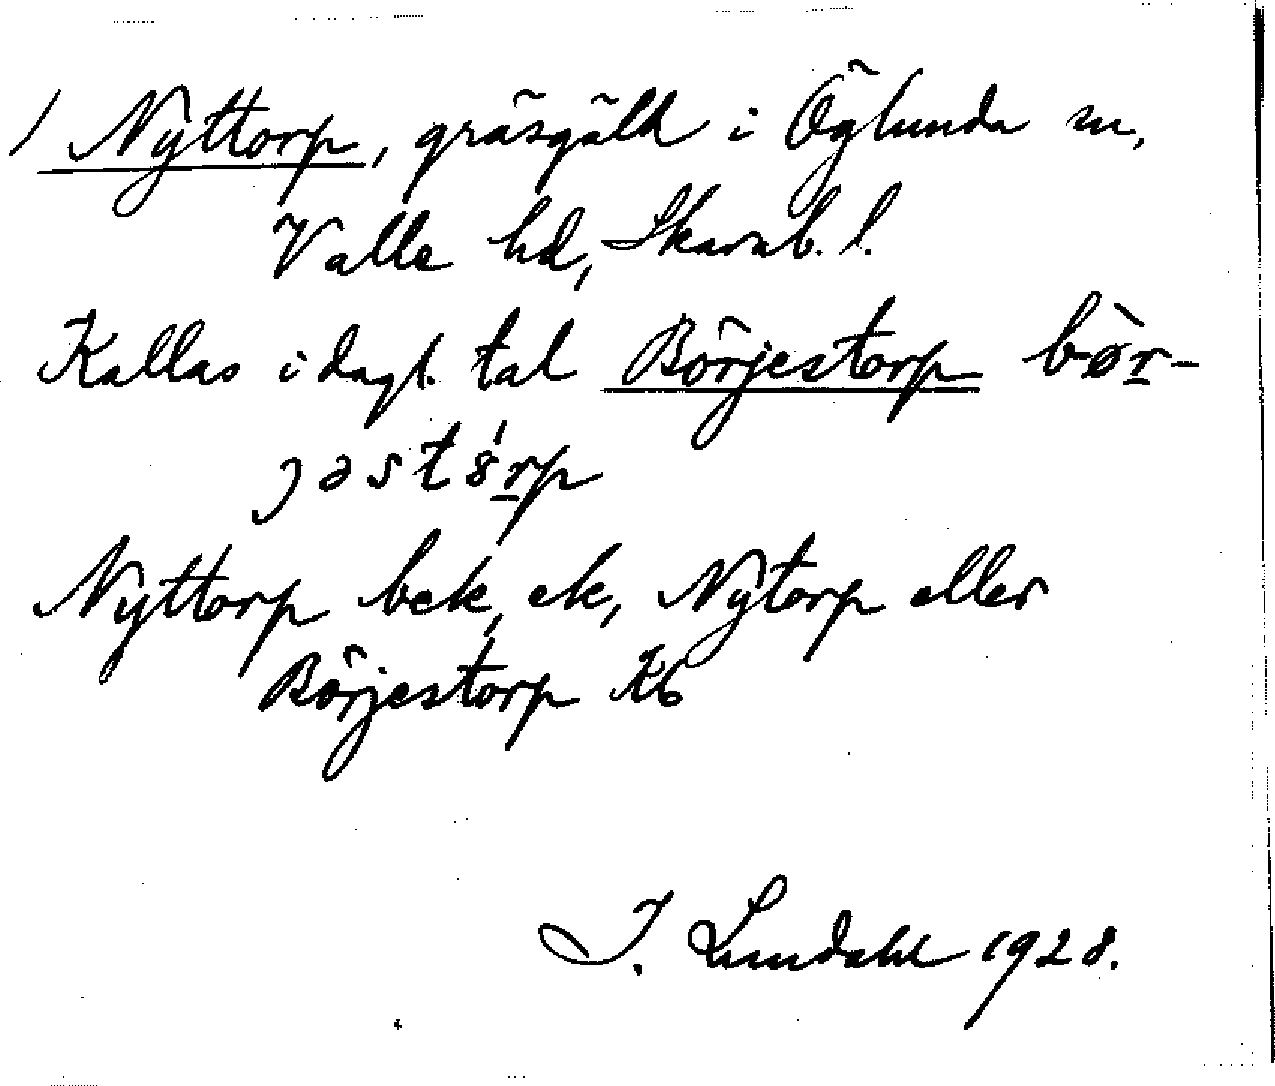 / Nyttorp, gräsgäld i Öglunda sn,
Valle hd, Skarab. l.
Kallas i dagl. tal Börjestorp bør-
jəstȯrp
Nyttorp bek, ek, Nytorp eller
Börjestorp Kb
I. Lundahl 1928.